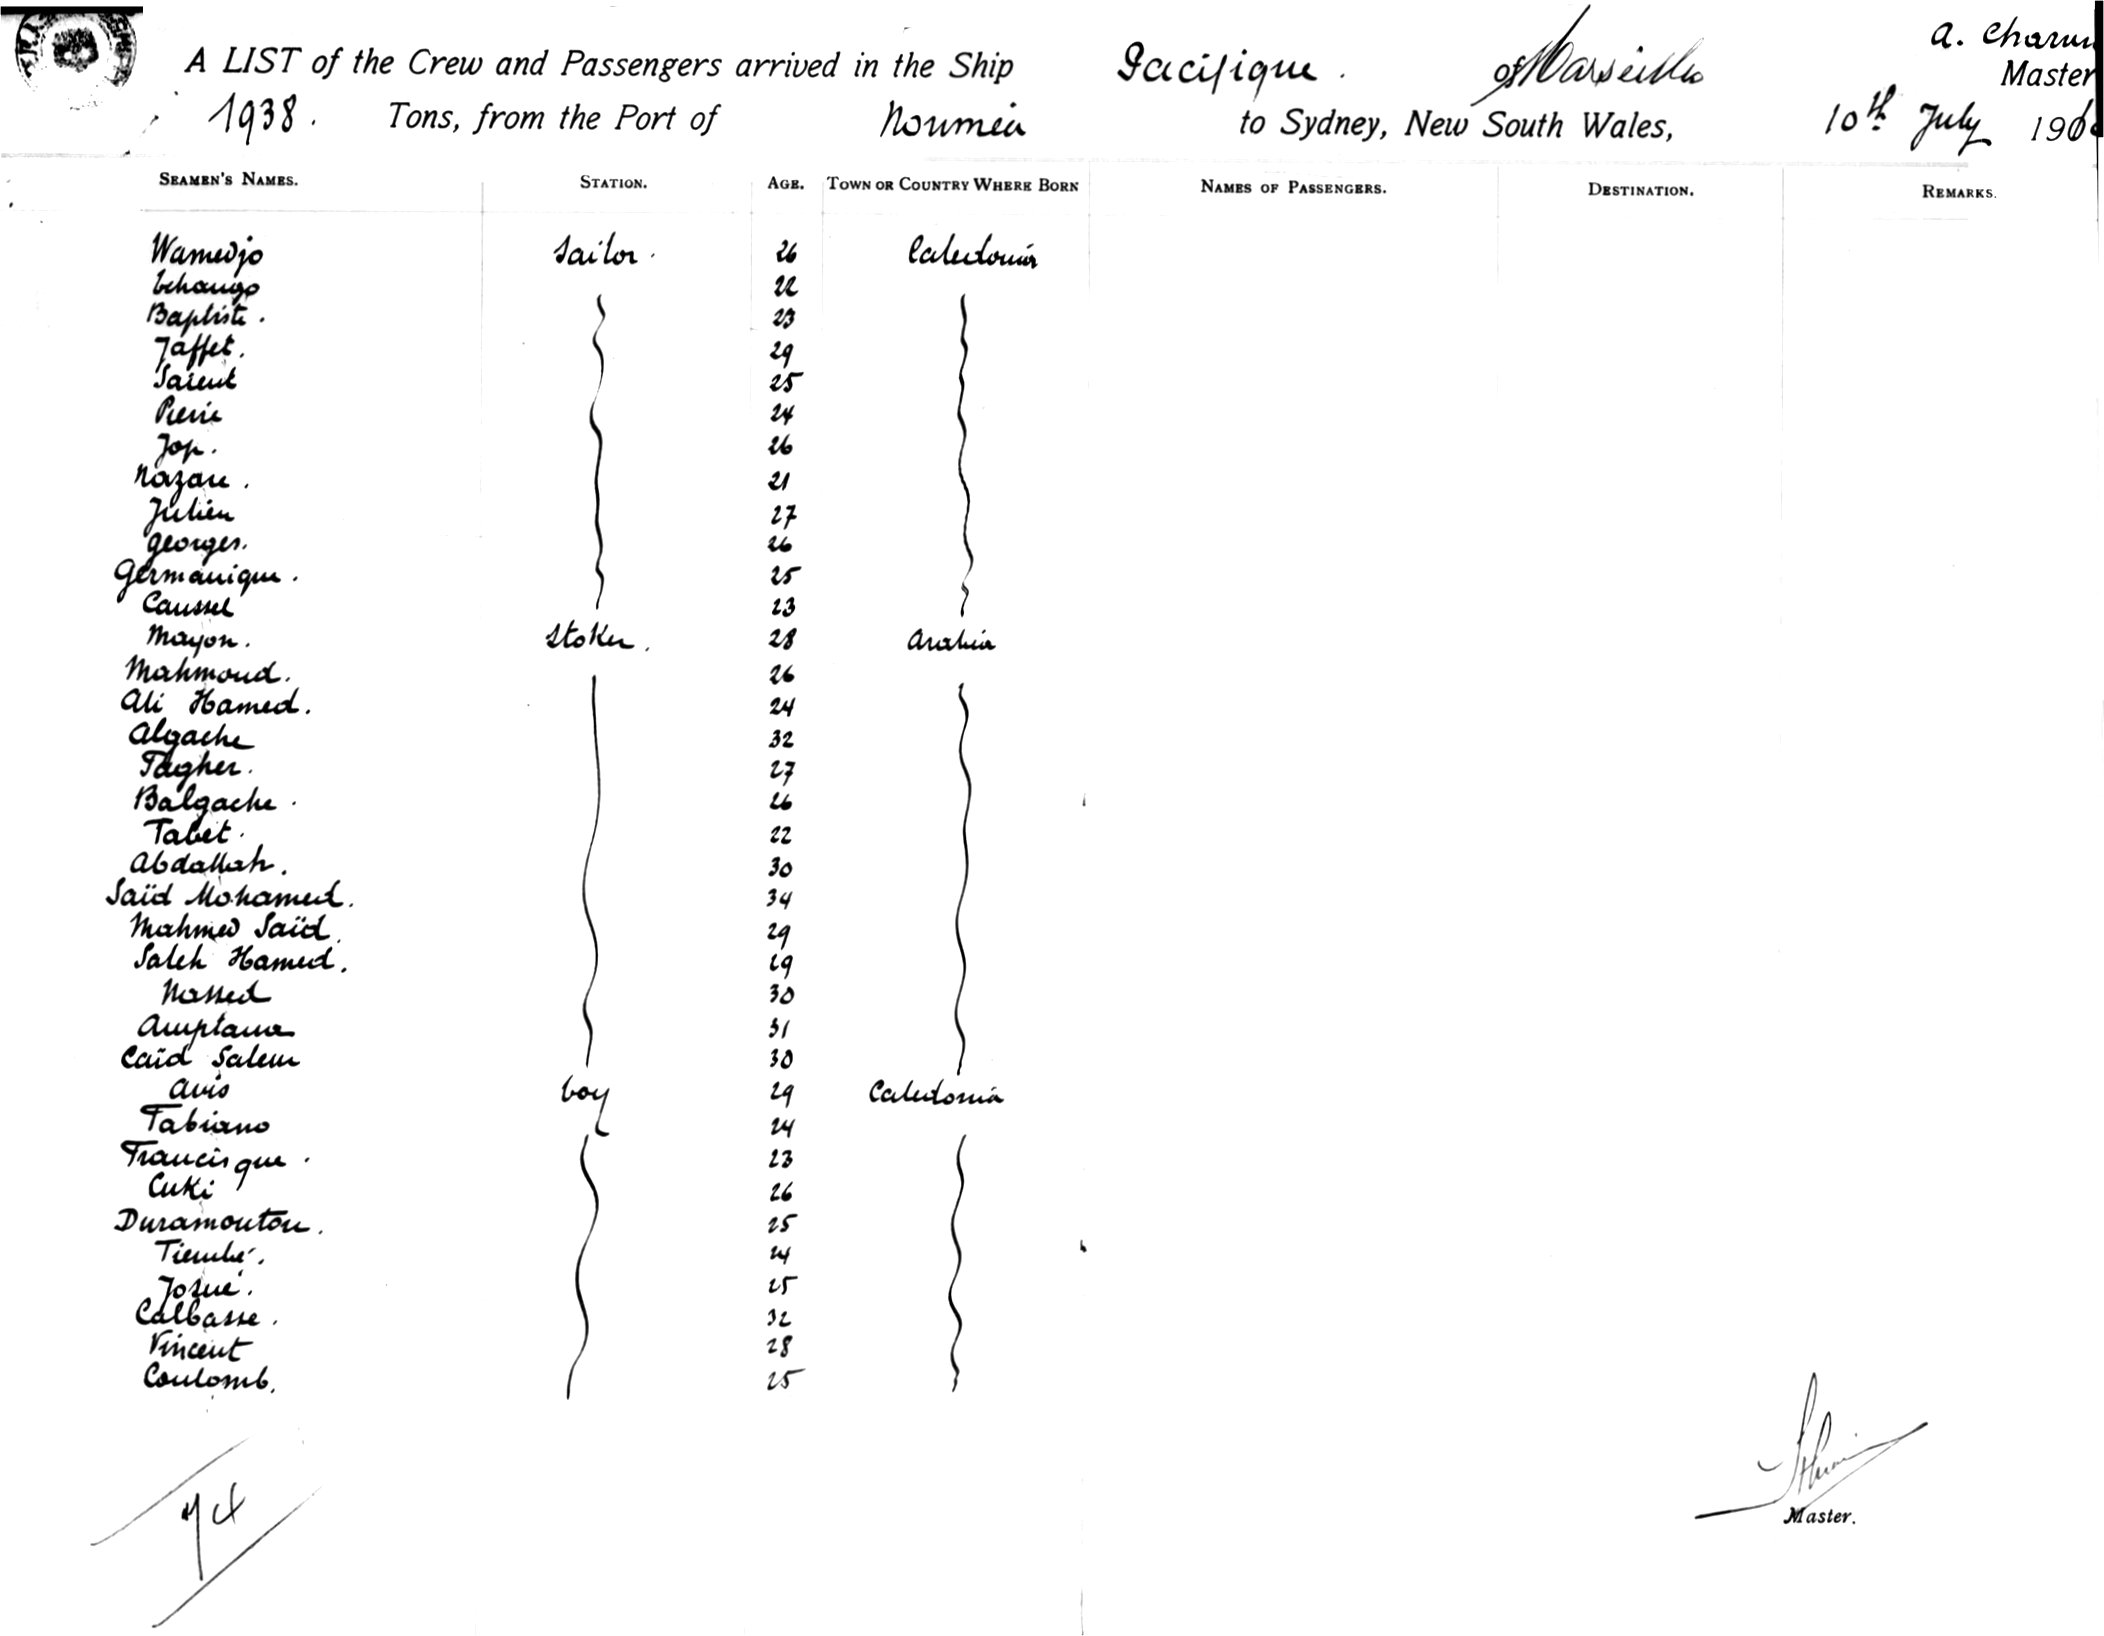 A LIST of the Crew and Passengers arrived in the Ship Pacifique. of Marseilles A. Charun Master
1938. Tons, from the Port of Nouméa to Sydney, New South Wales, 10th July 190
SEAMEN'S NAMES. STATION. AGE. TOWN OR COUNTRY WHERE BORN NAMES OF PASSENGERS. DESTINATION. REMARKS.
Wamedjo Sailor. 26 Caledonia
22
Baptiste. 23
Jaffet. 29
25
Pierre 24
Jop. 26
Nazare. 21
Julien 27
Georges. 26
Germanique. 25
Caussel 23
Mayon. Stoker. 28 Arabia
Mahmoud. 26
Ali Hamed. 24
Algache 32
Tagher. 27
Balgache. 26
Tabet. 22
Abdallah. 30
Saïd Mohamed. 34
Mahmed Saïd. 29
Saleh Hamed. 29
Nassed 30
31
Caïd Salem 30
Avis boy 29 Caledonia
Fabiano 24
Francisque. 23
Cuki 26
Duramouton. 25
Tiembé. 24
Josué. 25
Calbasse. 32
Vincent 28
Coulomb. 25
74
Master.